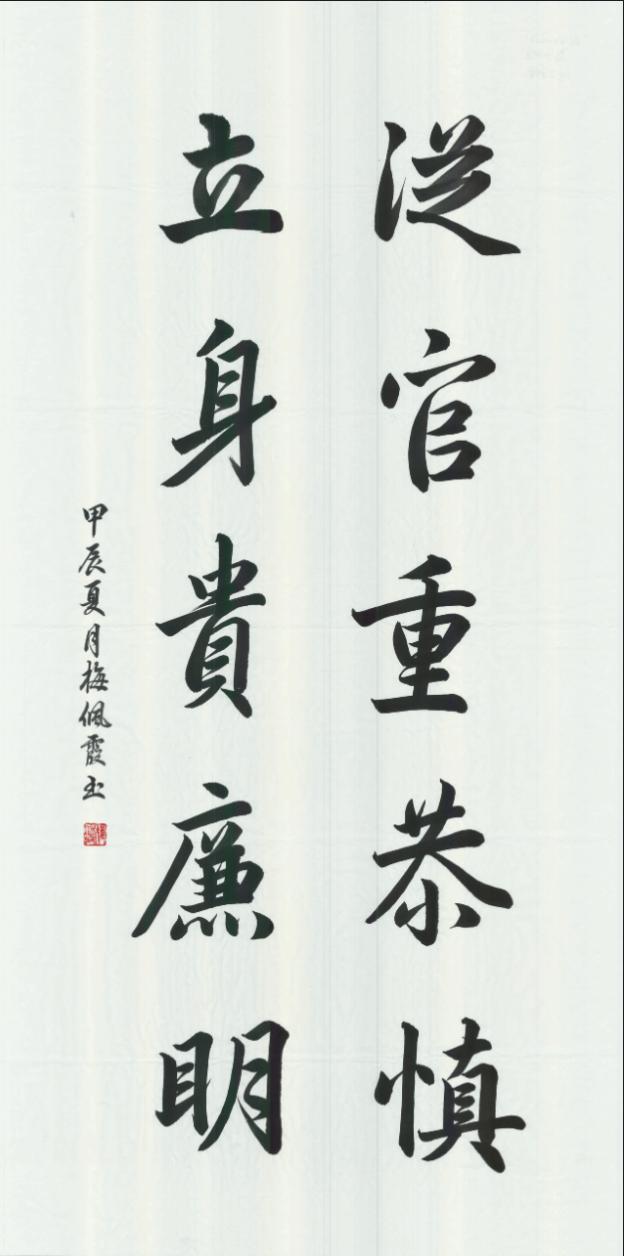 從官重恭慎
立身貴廉明
甲辰夏月梅佩霞书